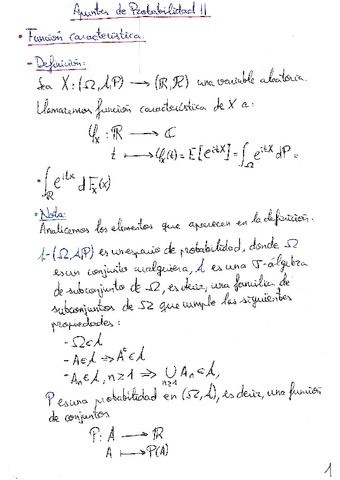 Apuntes de Probabilidad II
• Función característica.
- Definición:
Sea X: (Ω, A, P) → (ℝ, ℛ) una variable aleatoria.
Llamaremos función característica de X a:
φ_X : ℝ → ℂ
t ↦ φ_X(t) = E[e^{itX}] = ∫_Ω e^{itX} dP =
= ∫_ℝ e^{itx} dF_X(x)
• Nota:
Analicemos los elementos que aparecen en la definición:
1- (Ω, A, P) es un espacio de probabilidad, donde Ω
es un conjunto cualquiera, A es una σ-álgebra
de subconjuntos de Ω, es decir, una familia de
subconjuntos de Ω que cumple las siguientes
propiedades:
- Ω ∈ A
- A ∈ A ⇒ Aᶜ ∈ A
- Aₙ ∈ A, n ≥ 1 ⇒ ⋃_{n≥1} Aₙ ∈ A,
P es una probabilidad en (Ω, A), es decir, una función
de conjuntos
P: A → ℝ
A ↦ P(A)
1